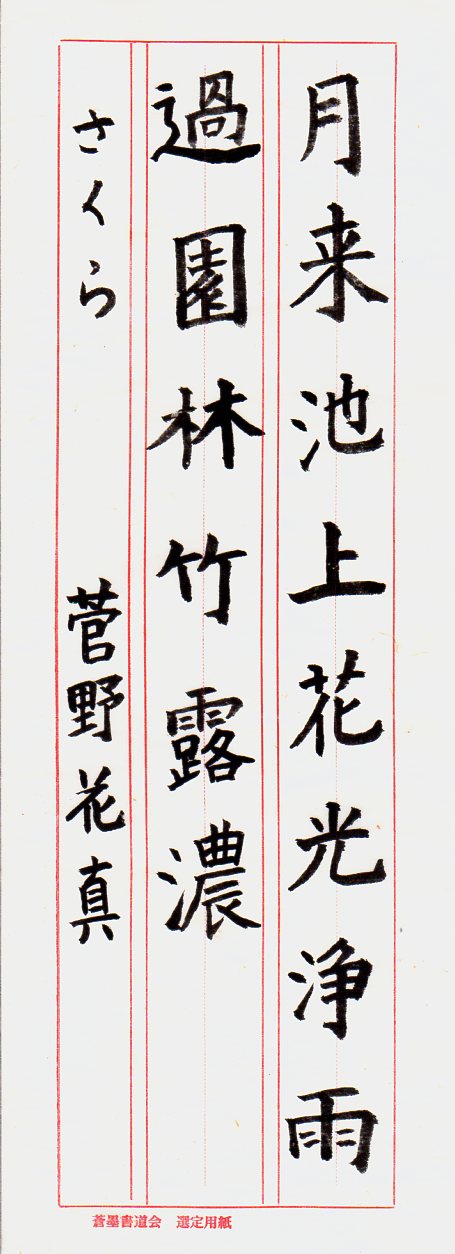 月来池上花光浄雨
過園林竹露濃
さくら 菅野花真
蒼墨書道会 選定用紙